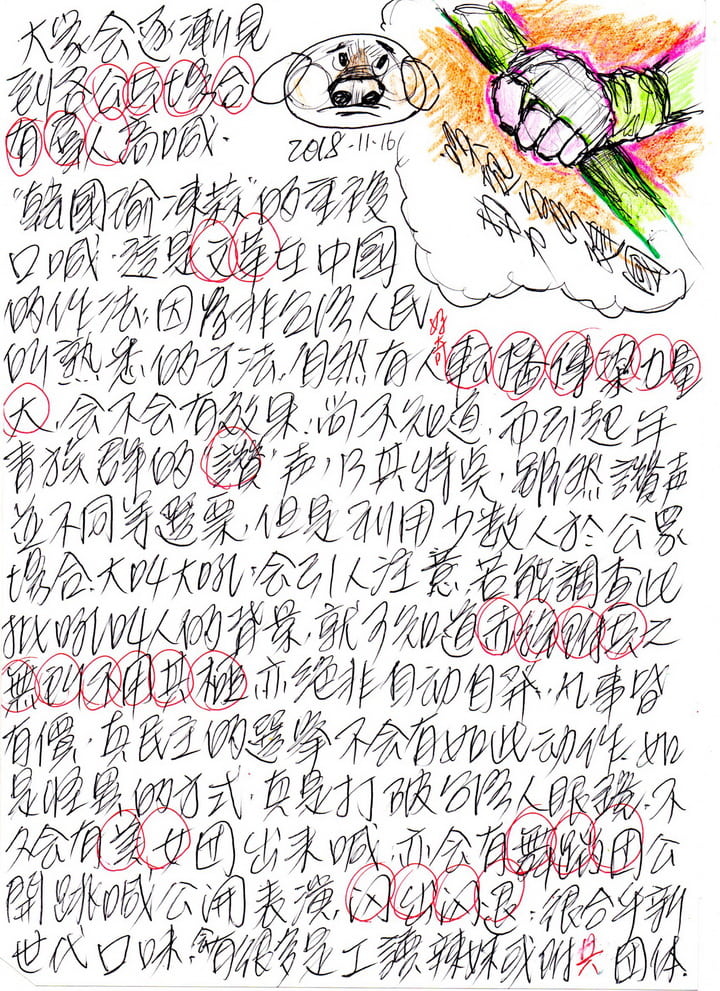 大家会逐漸見
到各公共場合
有寫人高喊.
2018-11-16
"韓國瑜凍蒜"的重複
口喊,這是文革在中國
的作法,因為非台灣人民
所熟悉的方法,自然有人
好奇
転播傳染力量
大,会不会有效果,尚不知道,而引起年
青族群的"讚"声,乃其特点,雖然讚声
並不同等選票,但是利用少數人於公眾
場合,大叫大吼,会引人注意,若能調查此
批吼叫人的背景,就可知道
無所不用其極,亦絕非自动自発,凡事皆
有價,真民主的選舉不会有如此动作,如
是怪異的方式,真是打破台湾人眼鏡,不
久会有美女団出来喊,亦会有舞蹈団公
開跳喊公開表演,閃出閃退,很合年新
世代口味,会有很多是工讀辣妹或附共団体.